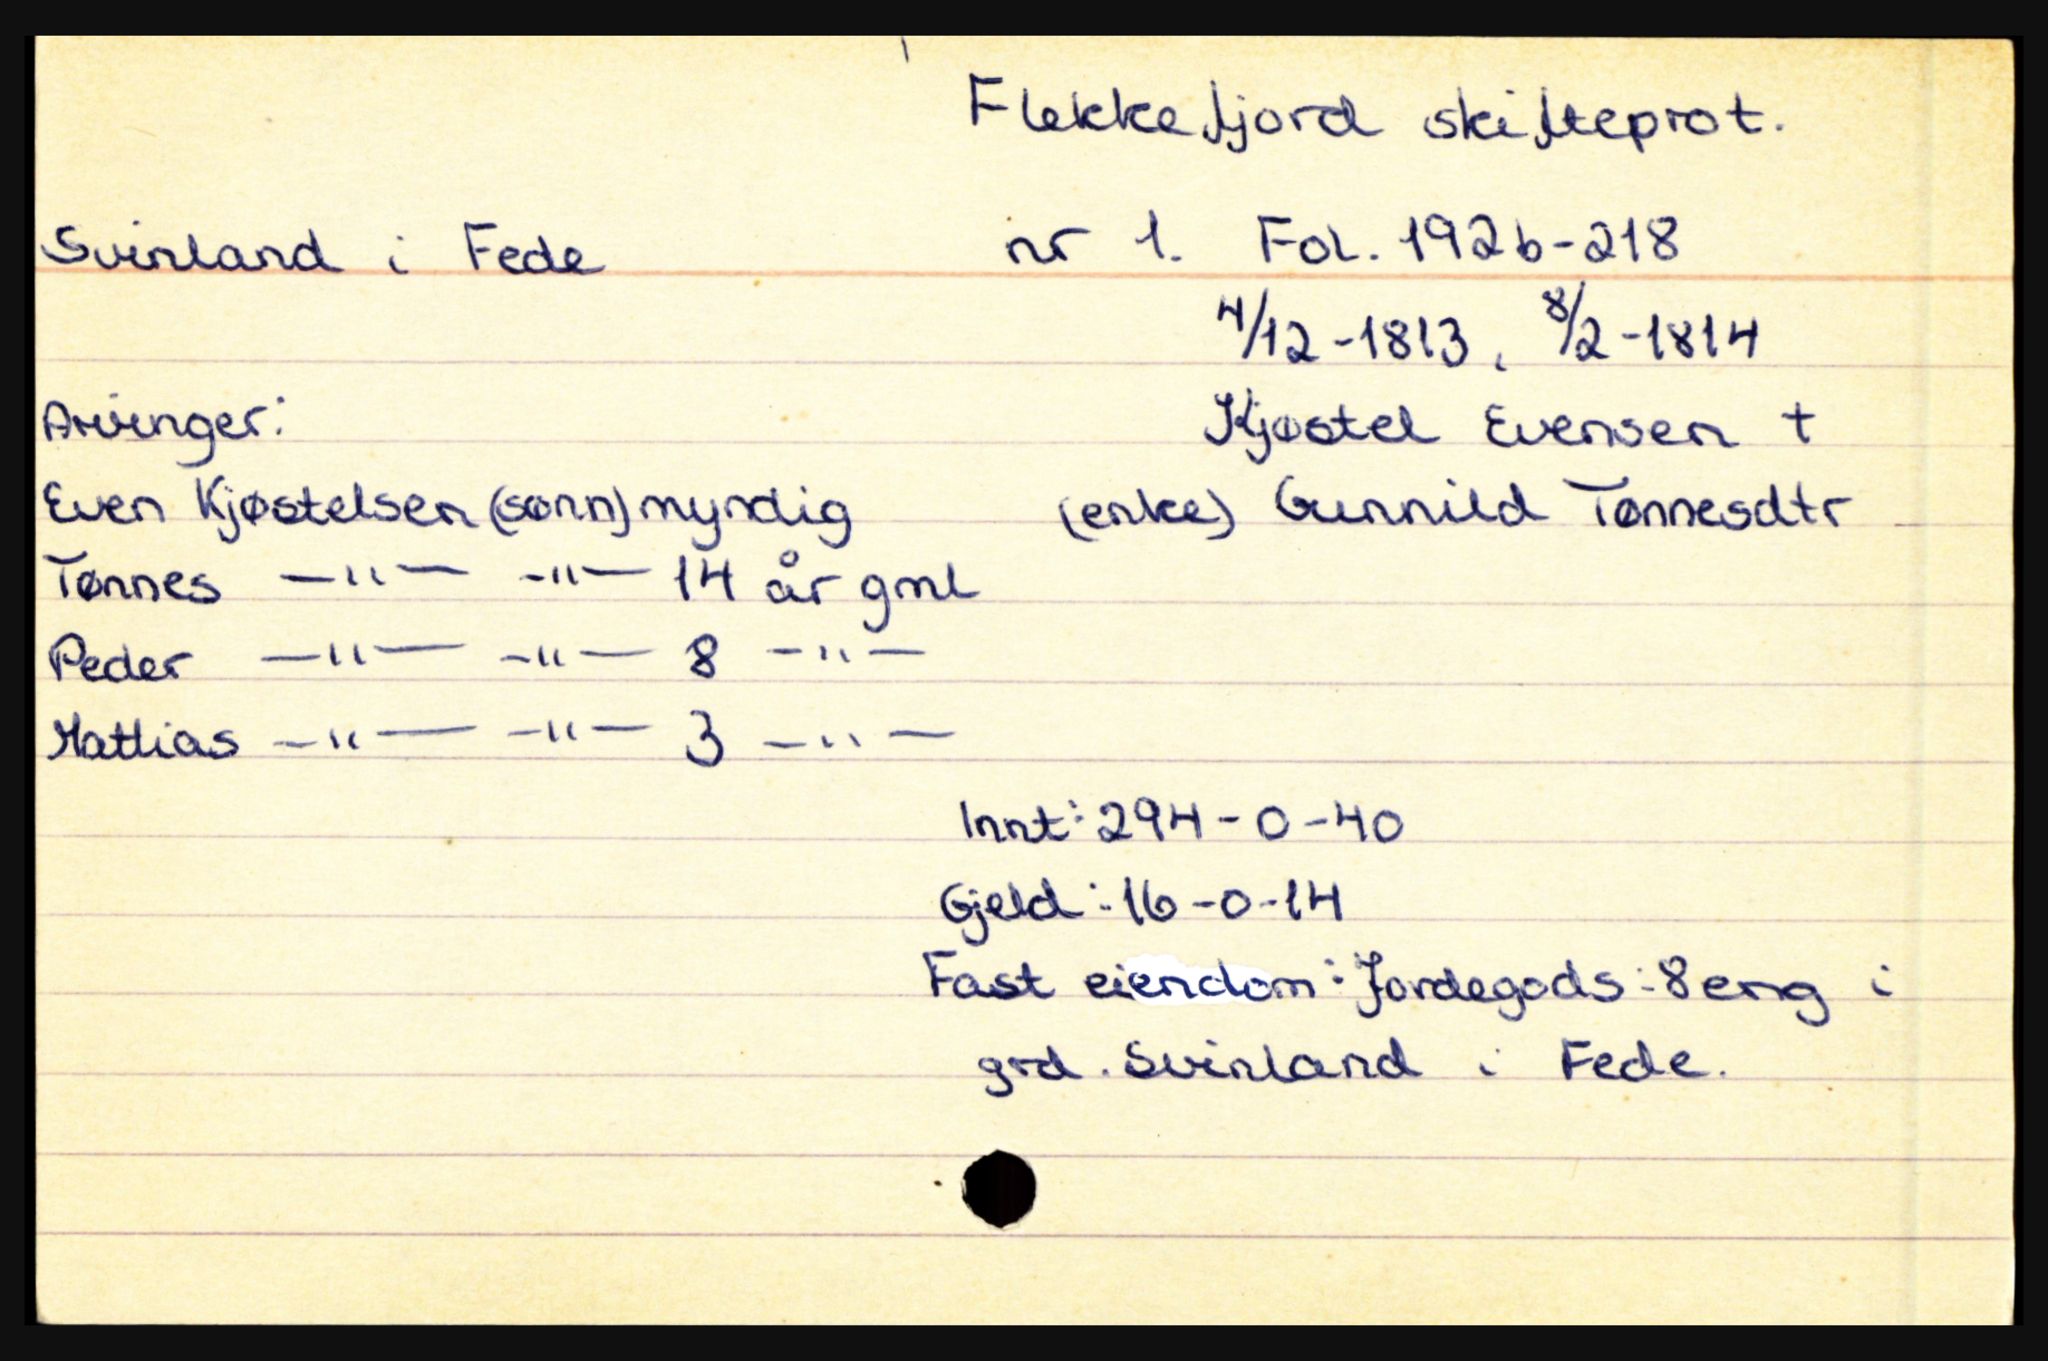 Flekkefjord skifteprot.
Svinland i Fede nr 1. Fol. 192b-218
4/12-1813, 8/2-1814
Arvinger: Kjøstel Evensen †
Even Kjøstelsen (sønn) myndig (enke) Gunnild Tønnesdtr
Tønnes —"— -"— 14 år gml
Peder —"— -"— 8 -"—
Mathias —"— -"— 3 —"—
Innt: 294-0-40
Gjeld: 16-0-14
Fast eiendom: Jordegods: 8 eng i
grd. Svinland i Fede.